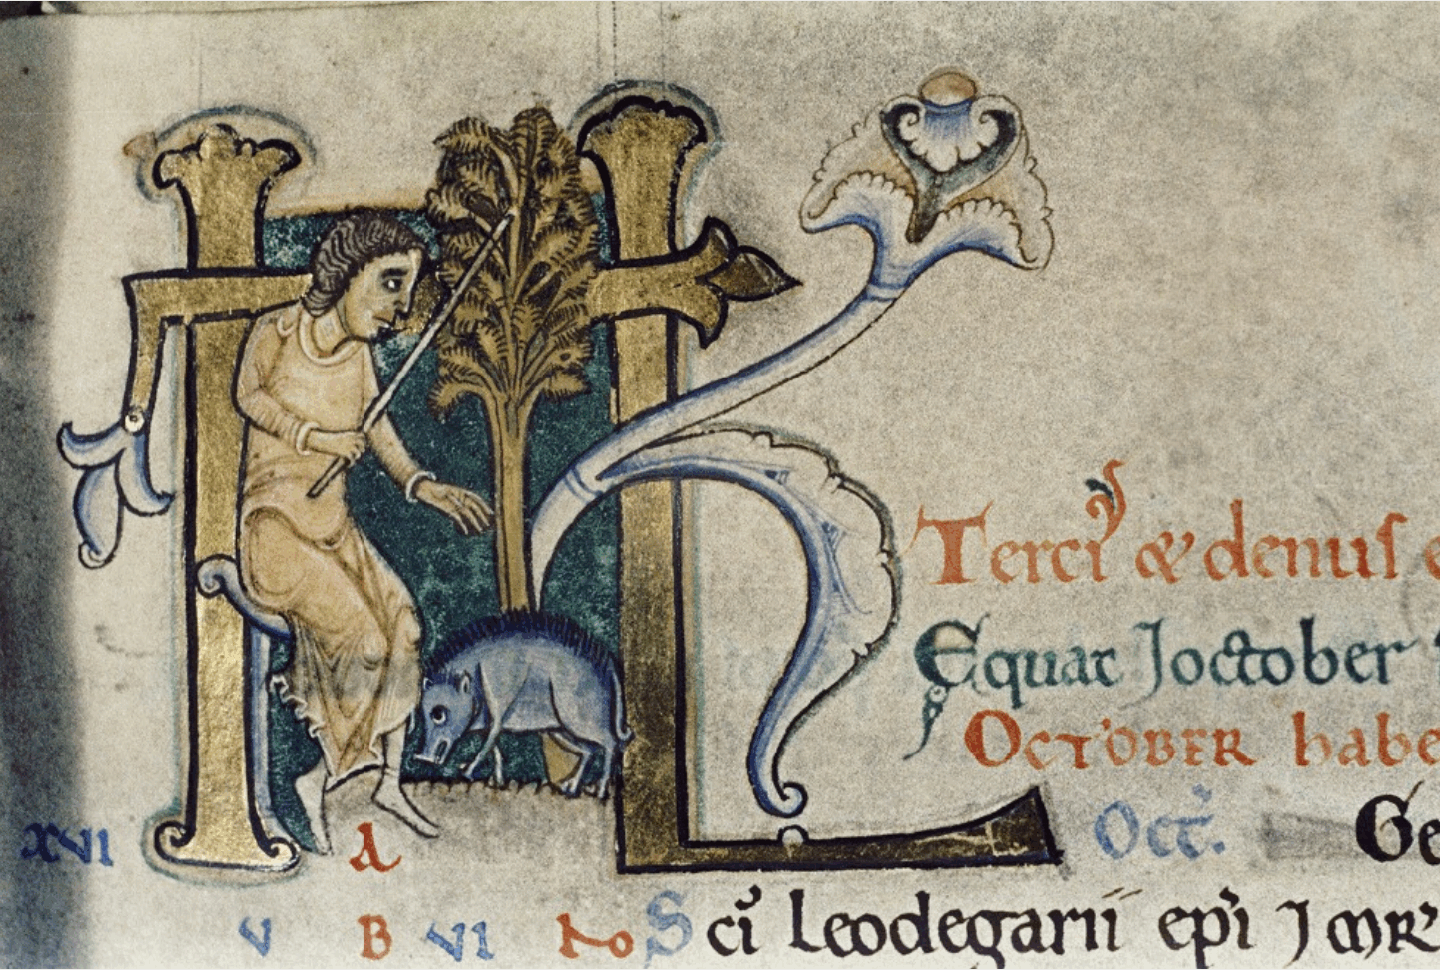 KL
Terci᷒ & denuſ e
Equat Joctober
OCTOBER habe
XVI A Oct̄. Ge
V B VI No Sc̄i Leodegarii ep̄i J mr̄